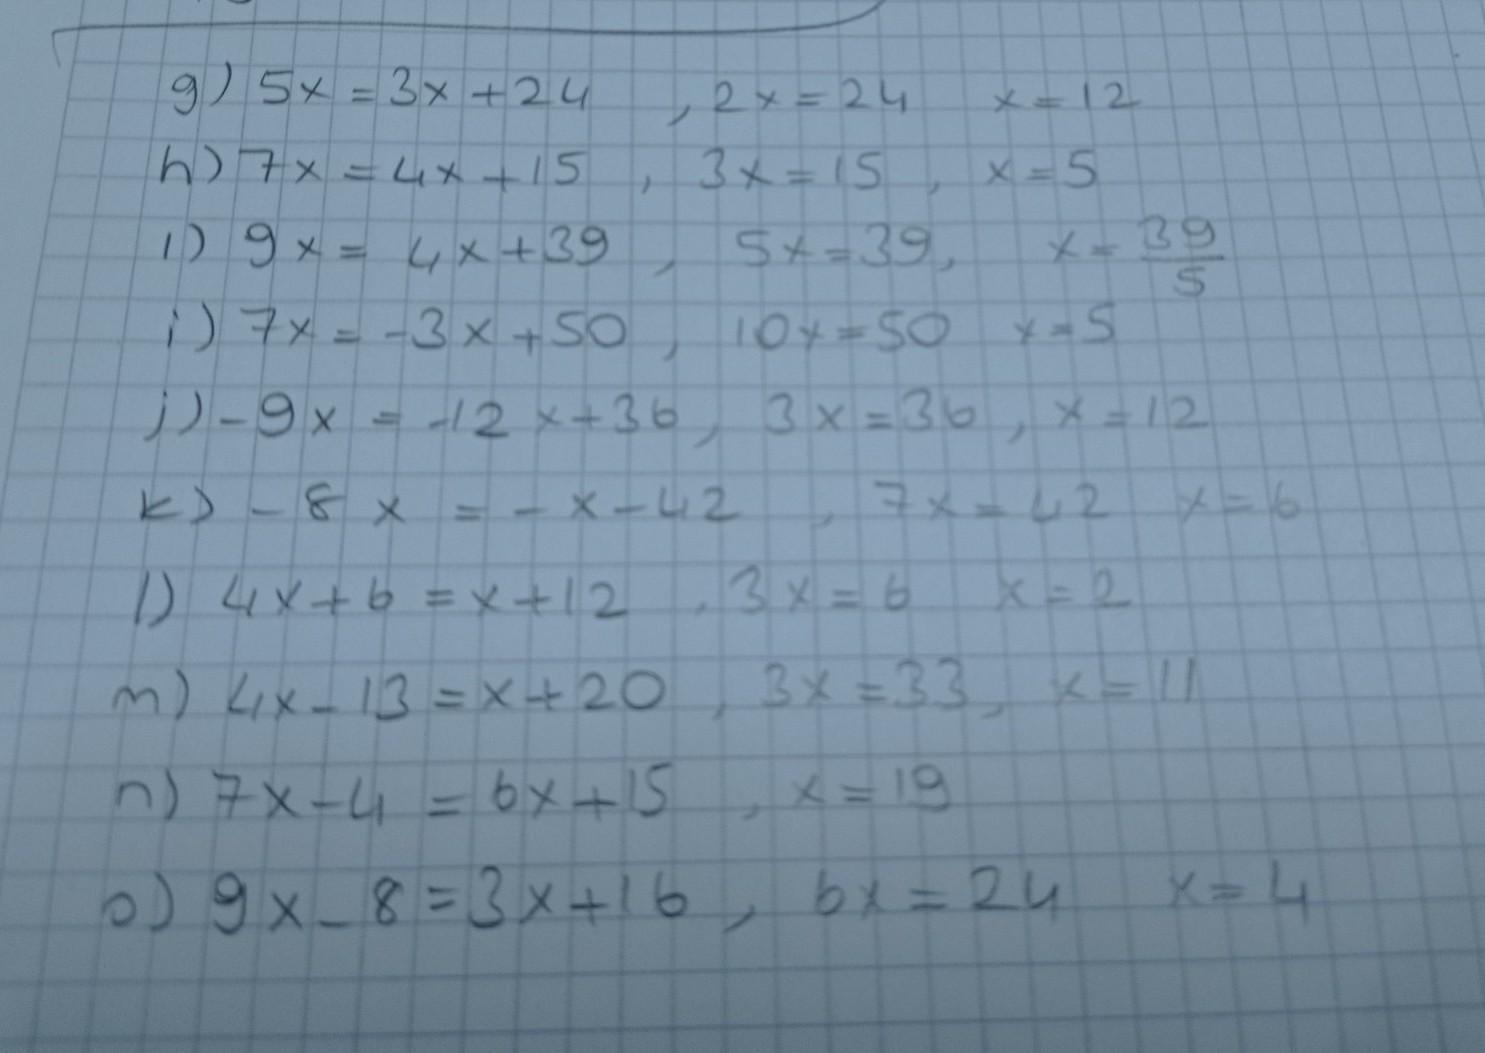 g) 5x = 3x + 24 , 2x = 24 x = 12
h) 7x = 4x + 15 , 3x = 15 , x = 5
ı) 9x = 4x + 39 , 5x = 39, x = 39/5
i) 7x = -3x + 50 , 10x = 50 x = 5
j) -9x = -12x + 36 , 3x = 36 , x = 12
k) -8x = -x - 42 , 7x = 42 x = 6
l) 4x + 6 = x + 12 , 3x = 6 x = 2
m) 4x - 13 = x + 20 , 3x = 33, x = 11
n) 7x - 4 = 6x + 15 , x = 19
o) 9x - 8 = 3x + 16 , 6x = 24 x = 4